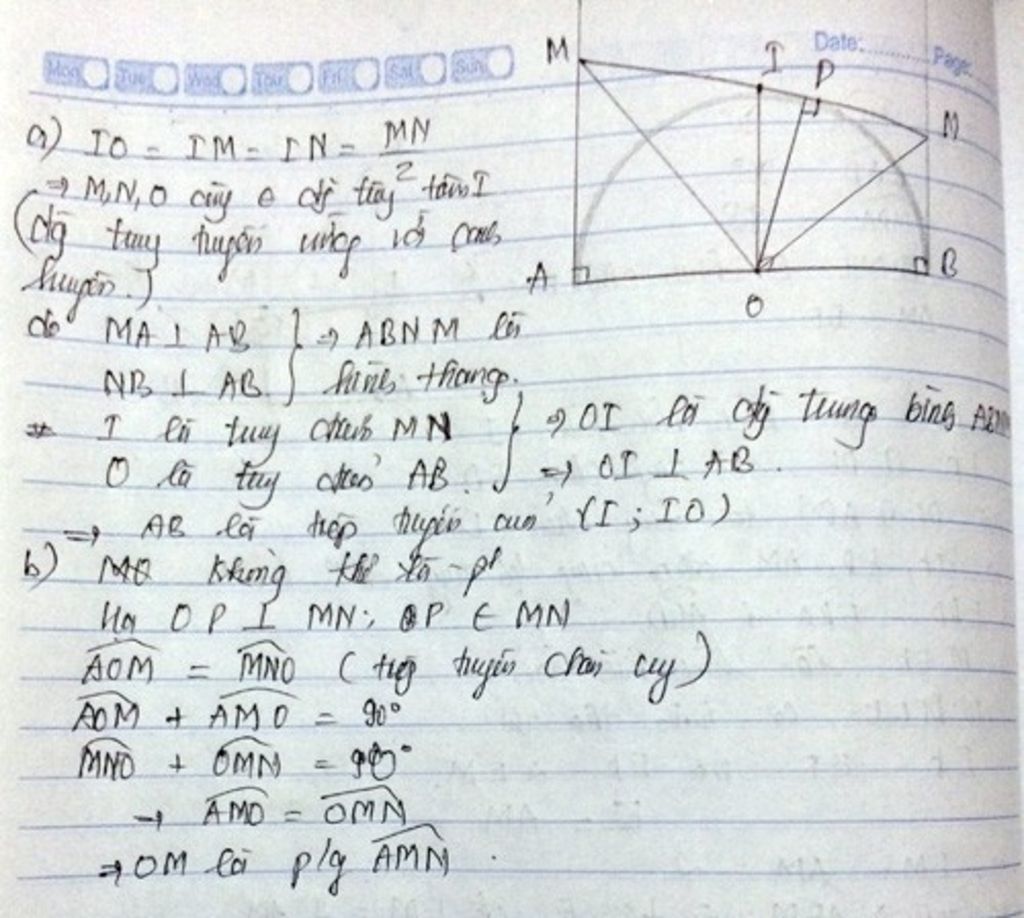 Mon Tue Wed Thu Fri Sat Sun
Date: Page:
M I P N
A O B
a) IO = IM = IN = MN/2
⇒ M, N, O cùng ∈ đg tròn tâm I
(đg trung tuyến ứng với cạnh
huyền.)
do MA ⊥ AB } ⇒ ABNM là
NB ⊥ AB } hình thang.
I là trung điểm MN } ⇒ OI là đg trung bình
O là trung điểm AB. } ⇒ OI ⊥ AB.
⇒ AB là tiếp tuyến của (I; IO)
b)
Hạ OP ⊥ MN; P ∈ MN
AOM = MNO (tiếp tuyến chắn cung)
AOM + AMO = 90°
MNO + OMN = 90°
→ AMO = OMN
⇒ OM là p/g AMN.